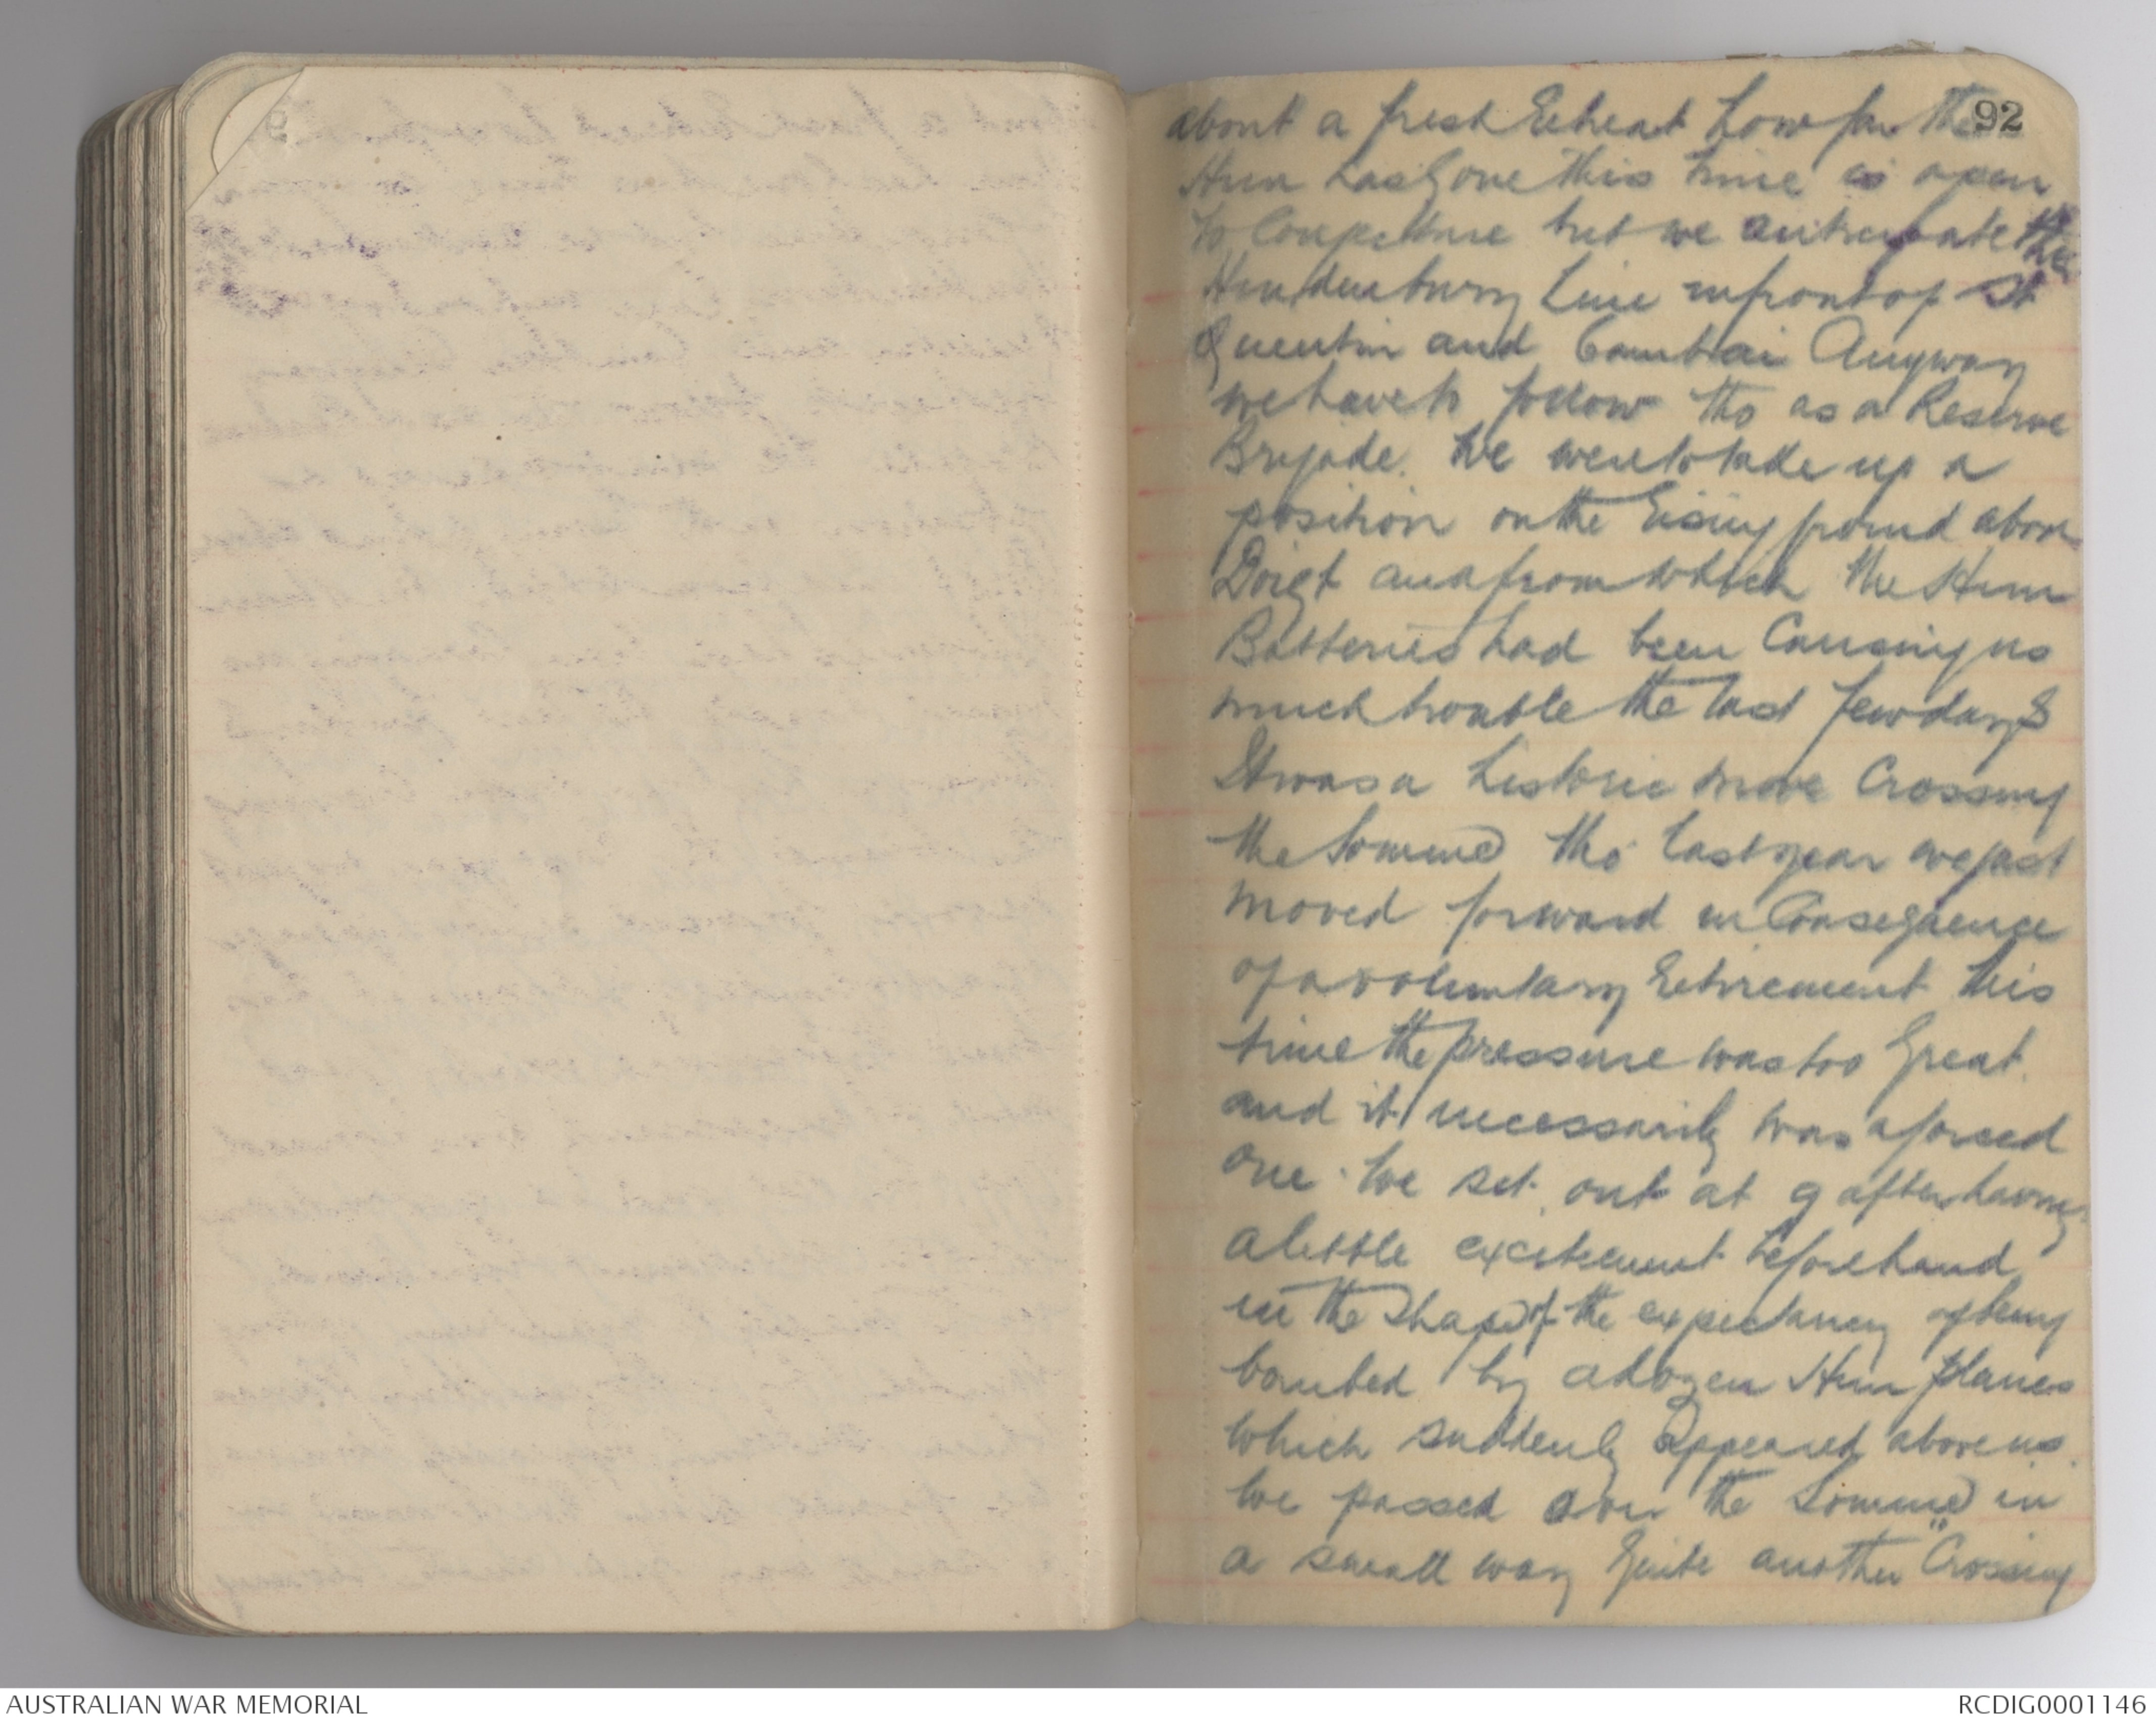 92
about a fresh Retreat How far the
Hun has Gone this time is open
to Conjecture but we anticipate the
Hindenburg Line infront of St
Quentin and Cambrai Anyway
we have to follow tho as a Reserve
Brigade. We were to take up a
position on the Rising ground above
Doigt and from which the Hun
Batteries had been Causing us
much trouble the last few days
It was a historic move Crossing
the Somme tho last year we just
moved forward in Consequence
of a voluntary Retirement this
time the pressure was too Great
and it necessarily was a forced
one. We set out at 9 after having
a little excitement beforehand
in the shape of the expectancy of being
bombed by a dozen Hun planes
which suddenly appeared above us.
We passed over the Somme in
a small way Quite another "Crossing
AUSTRALIAN WAR MEMORIAL
RCDIG0001146